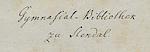 Gymnasial-Bibliothek
zu Stendal